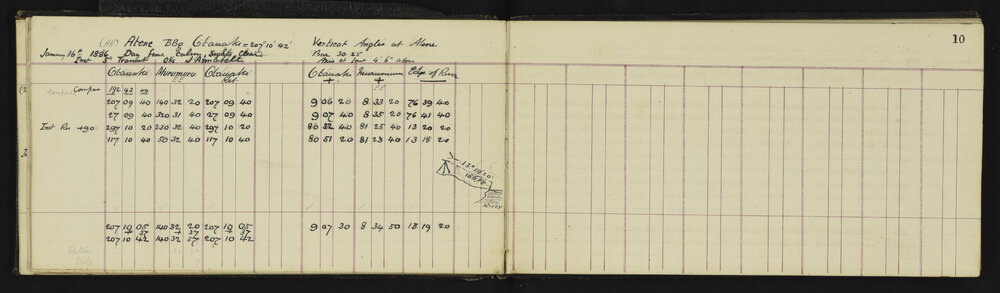 10
(AH) Atene BBo Otauahi = 207° 10' 42" Vertical Angles at Atene
January 16th 1886 Day fine Calm, Sights Clear Bar 30.25
Inst 5" Transit Obs Axis of Inst 4' 6" above
Otauahi Murumuru Otauahi Ret Otauahi + Murumuru + Edge of River
Compar 192 43 00
207 09 40 140 32 20 207 09 40 9 06 20 8 33 20 76 39 40
27 09 40 320 31 40 27 09 40 9 07 40 8 35 20 76 41 40
Inst Rev +90 297 10 20 230 32 40 297 10 20 80 52 40 81 25 40 13 20 20
117 10 40 50 32 40 117 10 40 80 51 20 81 23 40 13 18 20
13° 19' 20"
166 ft
River
207 10 05 140 32 20 207 10 05 9 07 30 8 34 50 13 19 20
+ 37 37 37
207 10 42 140 32 57 207 10 42